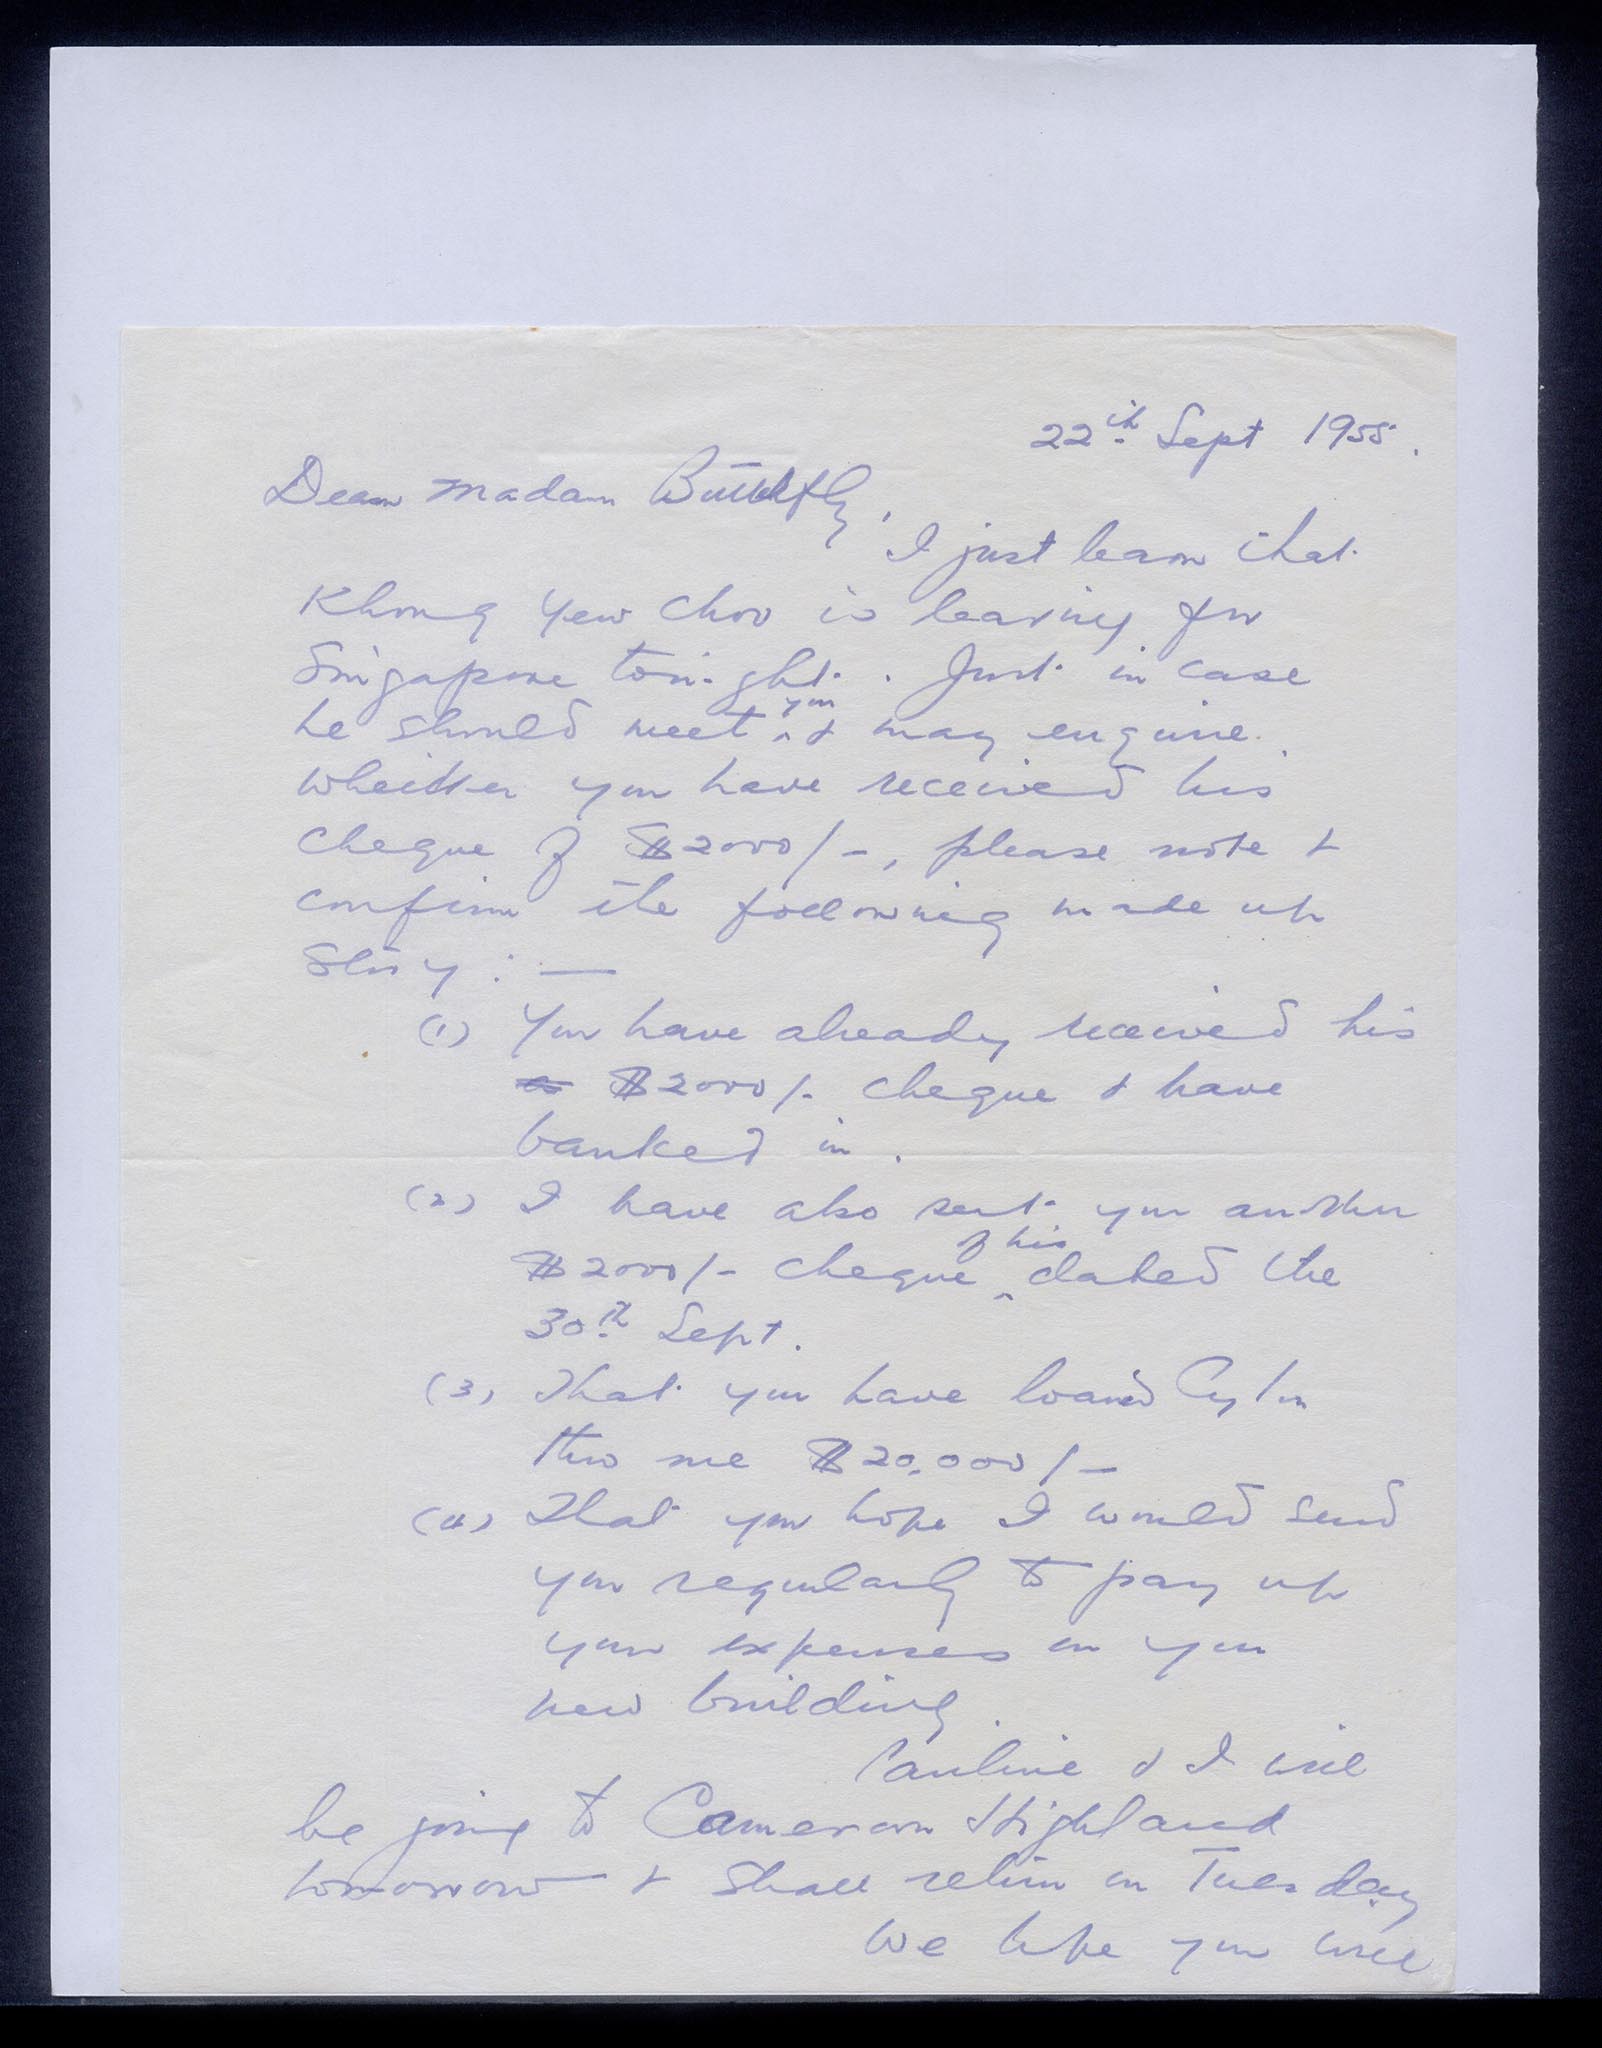 22th Sept 1955.
Dear Madam Butterfly,
I just learn that
Khong Yew Choo is leaving for
Singapore tonight. Just in case
he should meet you & may enquire
whether you have received his
cheque of $2000/-, please note &
confirm the following made up
story : —
(1) You have already received his
$2000/- cheque & have
banked in.
(2) I have also sent you another
$2000/- cheque of his dated the
30th Sept.
(3) That you have loaned
thro me $20,000/-
(4) That you hope I would send
you regularly to pay up
your expenses on your
new building.
Pauline & I will
be going to Cameron Highland
tomorrow & shall return on Tuesday
We hope you will